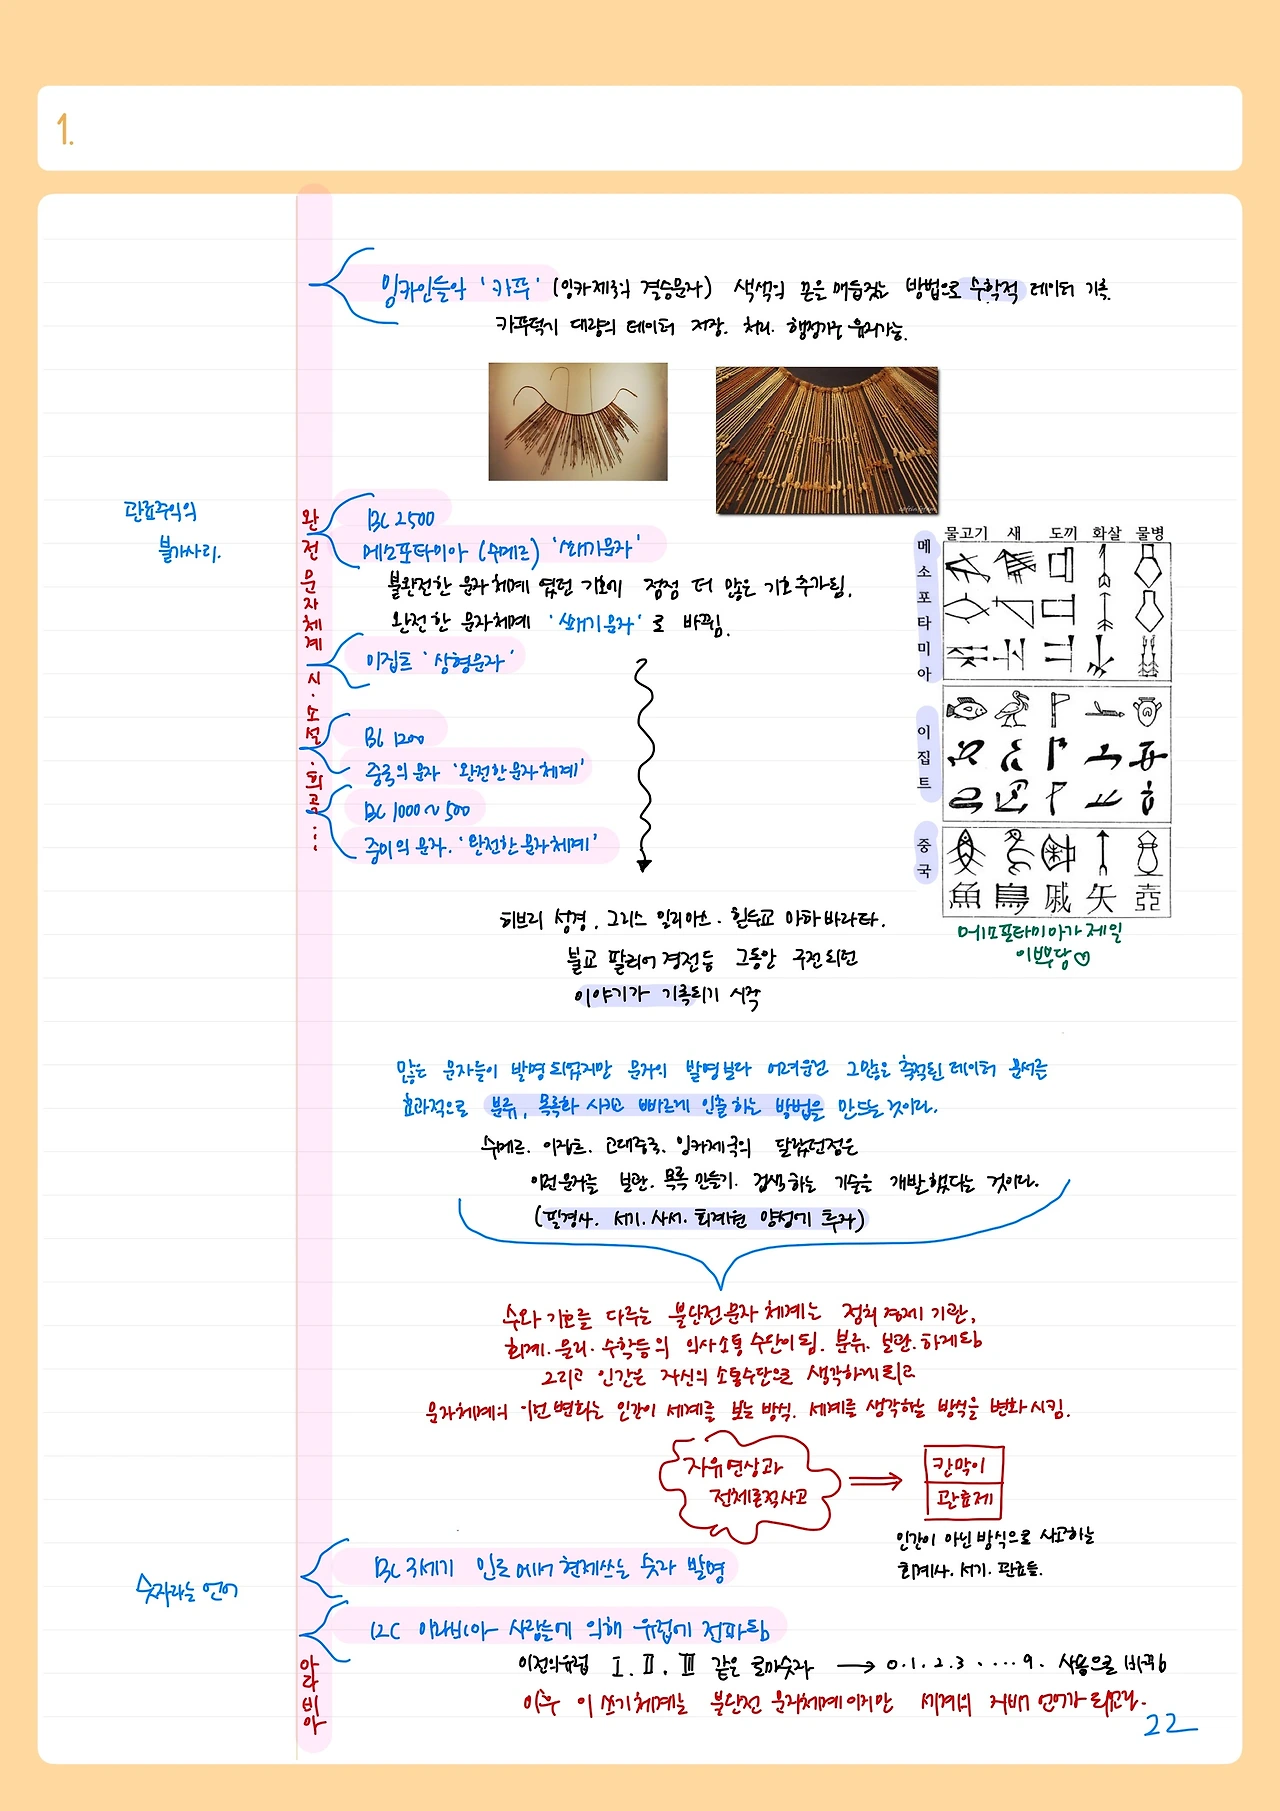 1.
잉카인들의 '카푸' (잉카제국의 결승문자) 색색의 끈을 매듭짓는 방법으로 수학적 데이터 기록.
카푸덕시 대량의 데이터 저장. 처리. 행정기관 유지가능.
관료주의의
불가사리.
완전 문자체계 시·소설·희곡...
BC 2500
메소포타미아 (수메르) '쐐기문자'
불완전한 문자체계 였던 기호에 점점 더 많은 기호추가됨.
완전한 문자체계 '쐐기문자'로 바뀜.
이집트 '상형문자'
BC 1200
중국의 문자 '완전한 문자체계'
BC 1000~500
중미의 문자. '완전한 문자체계'
물고기 새 도끼 화살 물병
메소포타미아
이집트
중국
魚 鳥 戚 矢 壺
메소포타미아가 제일
이쁘당♡
히브리 성경. 그리스 일리아스. 힌두교 마하바라타.
불교 팔리어경전등 그동안 구전되던
이야기가 기록되기 시작
많은 문자들이 발명되었지만 문자의 발명보다 어려운건 그만큼 축적된 데이터 문서를
효과적으로 분류, 목록화 시키고 빠르게 인출하는 방법을 만드는것이다.
수메르. 이집트. 고대중국. 잉카제국의 달랐던점은
이런문자를 보관. 목록만들기. 검색하는 기술을 개발했다는 것이다.
(필경사. 서기. 사서. 회계원 양성에 투자)
수와 기호를 다루는 불완전문자 체계는 정치경제 기관,
회계. 물리. 수학등의 의사소통 수단이됨. 분류. 보관. 하게됨
그리고 인간은 자신의 소통수단으로 생각하게되고
문자체계의 이런변화는 인간이 세계를 보는방식. 세계를 생각하는 방식을 변화시킴.
자유연상과
전체론적사고
칸막이
관료제
인간이 아닌방식으로 사고하는
회계사. 서기. 관료들.
숫자라는 언어
BC 3세기 인도에서 현재쓰는 숫자 발명
12C 아라비아 사람들에 의해 유럽에 전파됨
이전의유럽 Ⅰ. Ⅱ. Ⅲ 같은 로마숫자 → 0.1.2.3 ....9. 사용으로 바뀜
아라비아
이후 이 쓰기체계는 불완전 문자체계이지만 세계의 지배 언어가 되고있다.
22